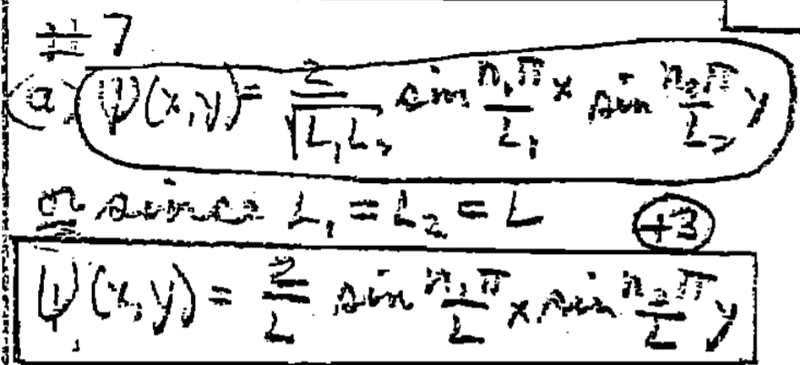 #7
(a) ψ(x,y) = 2/√(L₁L₂) sin n₁π/L₁ x sin n₂π/L₂ y
or since L₁ = L₂ = L +3
ψ(x,y) = 2/L sin n₁π/L x sin n₂π/L y